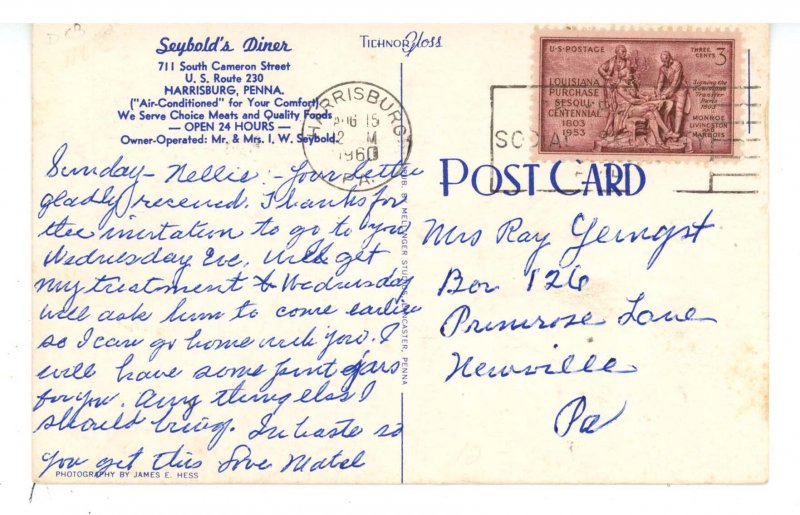 Seybold's Diner
711 South Cameron Street
U. S. Route 230
HARRISBURG, PENNA.
("Air-Conditioned" for Your Comfort)
We Serve Choice Meats and Quality Foods
— OPEN 24 HOURS —
Owner-Operated: Mr. & Mrs. I. W. Seybold
Sunday - Nellie - Your letter
gladly received. Thanks for
the invitation to go to you
Wednesday Eve, Will get
my treatment Wednesday
will ask him to come earlier
so I can go home with you. I
will have some pint jars
for you. Any thing else I
should bring. In haste so
you get this Love Matel
PHOTOGRAPHY BY JAMES E. HESS
TICHNOR Gloss
PUB. BY MELLINGER STUDIOS, LANCASTER, PENNA
HARRISBURG
AUG 15
2 M
1960
PA.
U.S. POSTAGE
THREE CENTS 3
LOUISIANA
PURCHASE
SESQUI-
CENTENNIAL
1803
1953
Signing the
Louisiana
Transfer
Paris
1803
MONROE
LIVINGSTON
AND MARBOIS
POST CARD
Mrs Ray Yeingst
Box 126
Primrose Lane
Newville
Pa